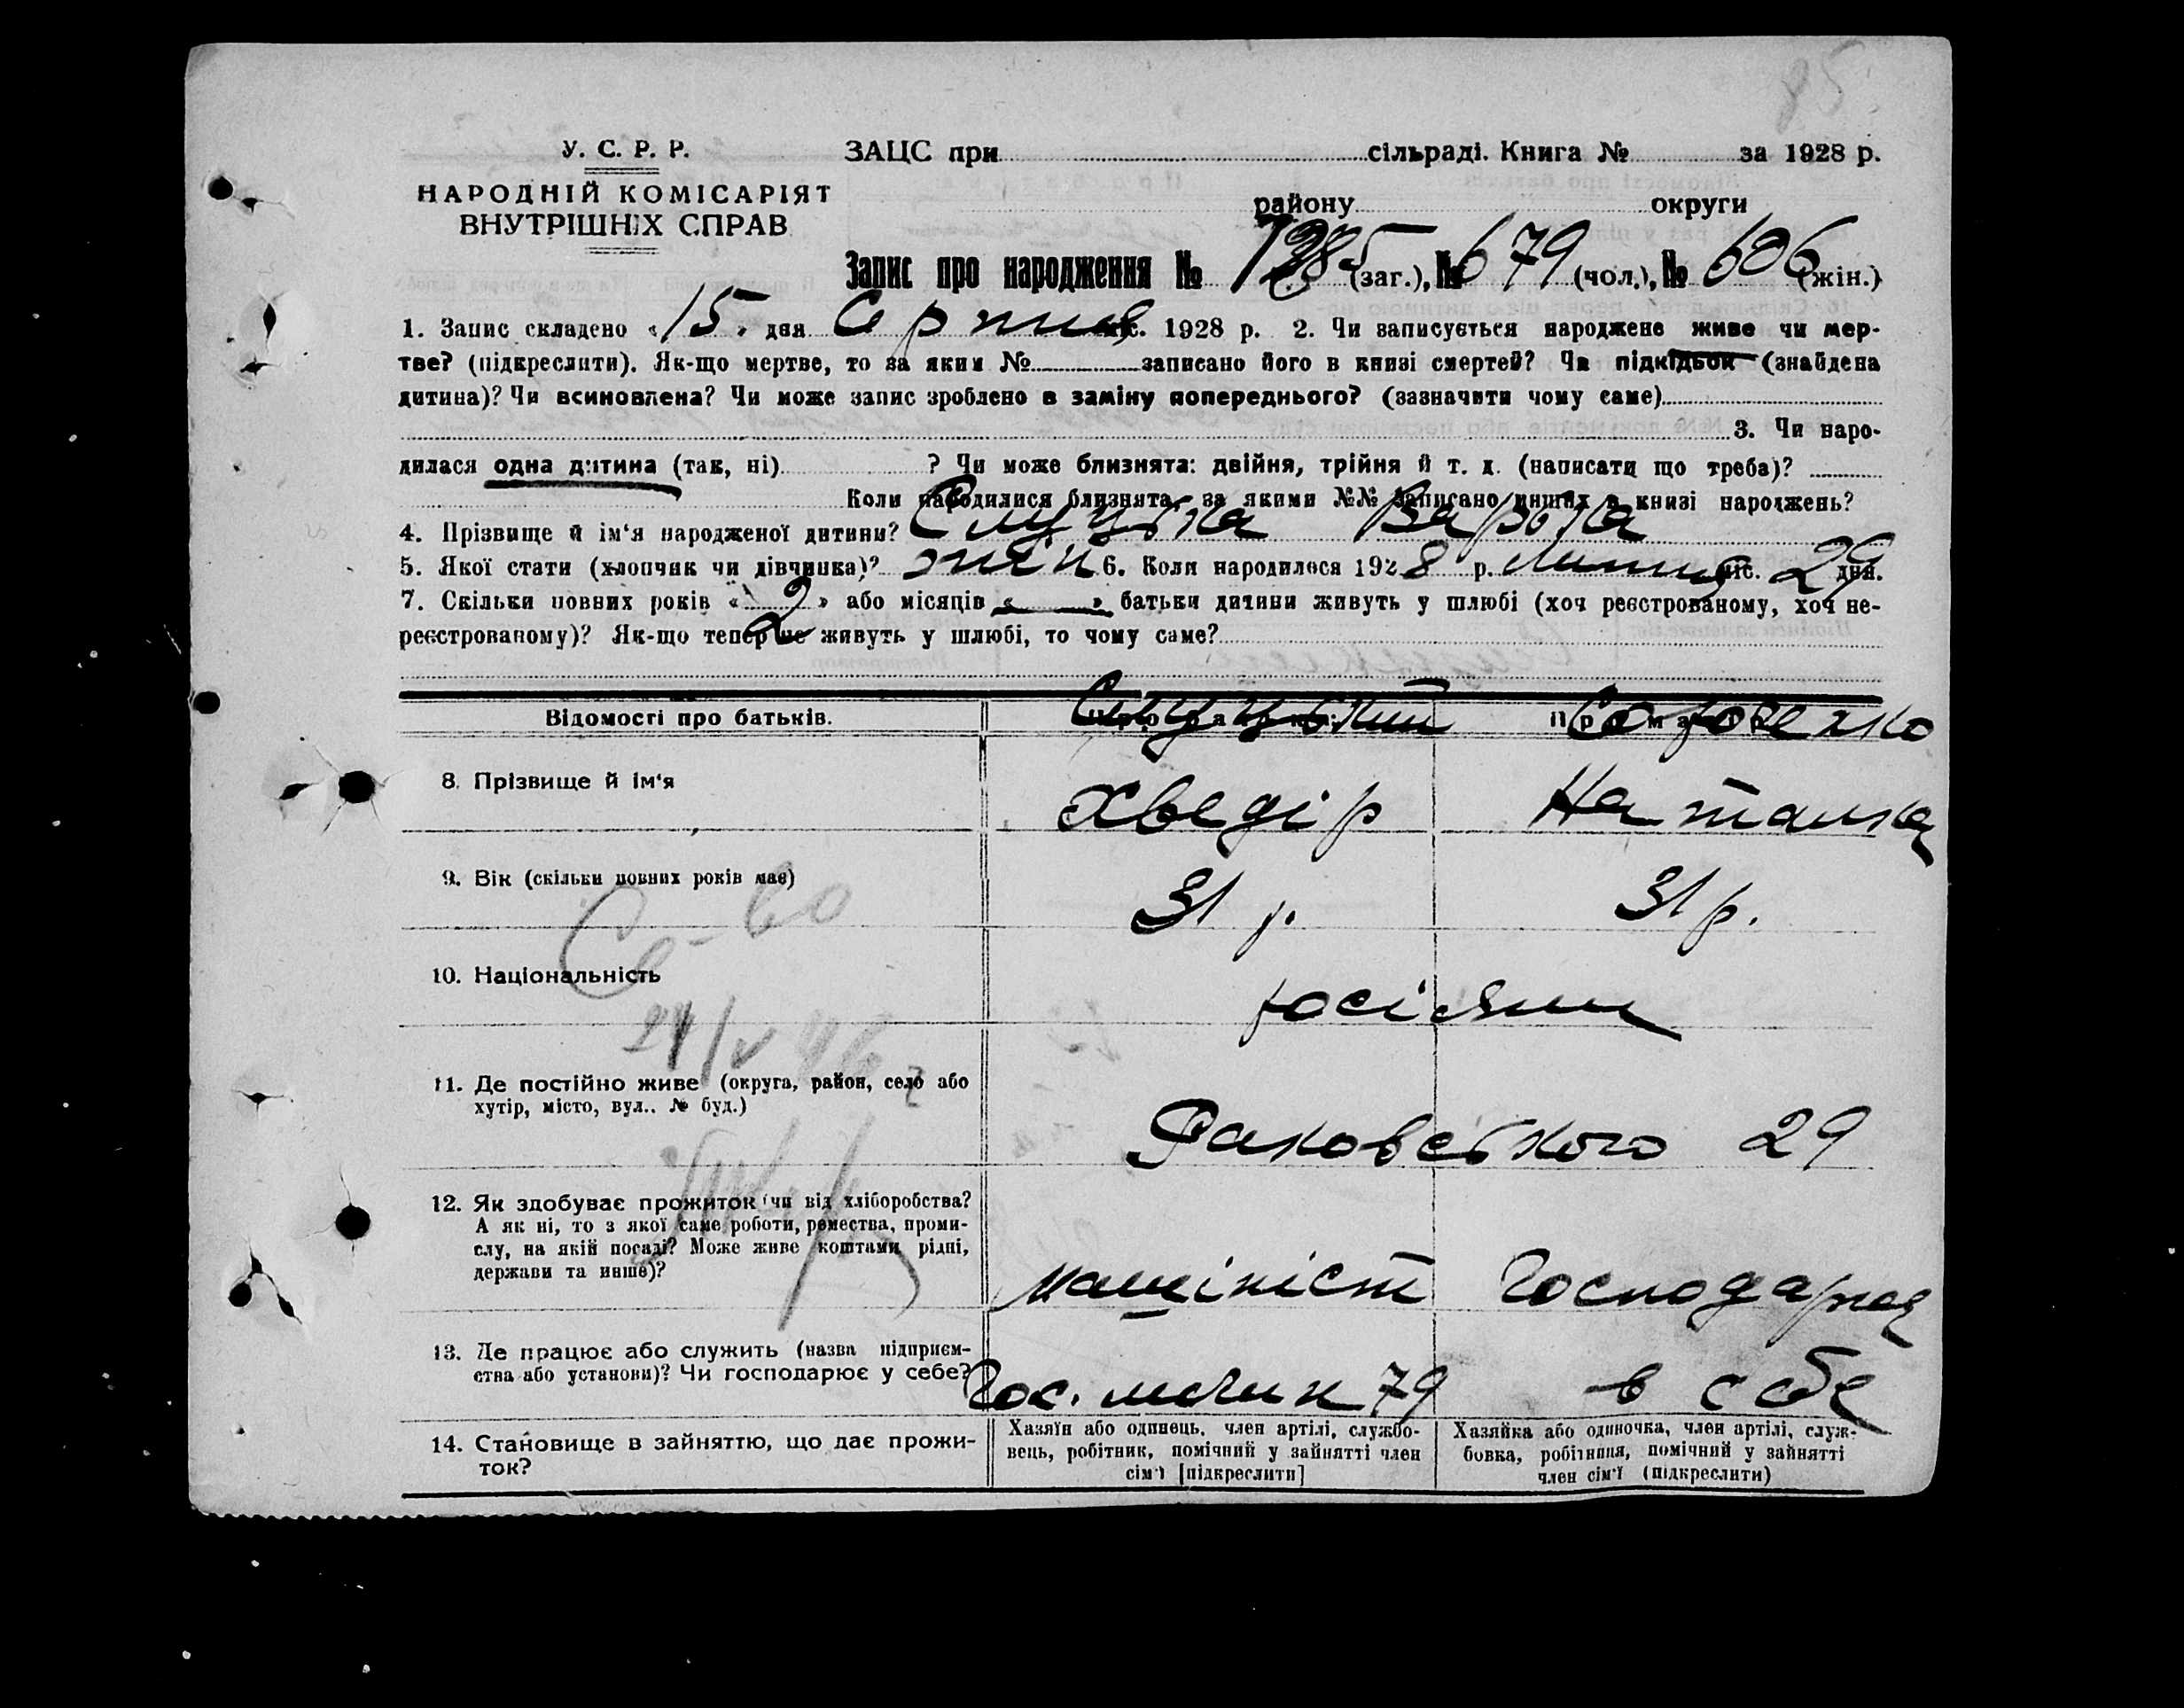 85
У. С. Р. Р.
НАРОДНІЙ КОМІСАРІЯТ
ВНУТРІШНІХ СПРАВ
ЗАЦС при сільраді. Книга № за 1928 р.
району округи
Запис про народження № 1285 (заг.), № 679 (чол.), № 606 (жін.)
1. Запис складено « 15 » дня Серпня міс. 1928 р. 2. Чи записується народжене живе чи мер-
тве? (підкреслити). Як-що мертве, то за яким № записано його в книзі смертей? Чи підкідьок (знайдена
дитина)? Чи всиновлена? Чи може запис зроблено в заміну попереднього? (зазначити чому саме)
3. Чи наро-
дилася одна дитина (так, ні) ? Чи може близнята: двійня, трійня й т. д. (написати що треба)?
Коли народилися близнята, за якими №№ записано инших в книзі народжень?
4. Прізвище й ім'я народженої дитини? Слуцька
5. Якої стати (хлопчик чи дівчинка)? жін 6. Коли народилося 1928 р. Липня міс. 29 дня.
7. Скільки повних років « 2 » або місяців « » батьки дитини живуть у шлюбі (хоч реєстрованому, хоч не-
реєстрованому)? Як-що тепер не живуть у шлюбі, то чому саме?
Відомості про батьків. Слуцький
8. Прізвище й ім'я Хведір Наталка
9. Вік (скільки повних років має) 31 р. 31 р.
10. Національність росіяни
11. Де постійно живе (округа, район, село або
хутір, місто, вул.. № буд.)
Раковського 29
12. Як здобуває прожиток (чи від хліборобства?
А як ні, то з якої саме роботи, ремества, проми-
слу, на якій посаді? Може живе коштами рідні,
держави та инше)?
машініст Господарює
13. Де працює або служить (назва підприєм-
ства або установи)? Чи господарює у себе?
Гос. млин 79 в себе
14. Становище в зайняттю, що дає прожи-
ток?
Хазяїн або одинець, член артілі, службо-
вець, робітник, помічний у зайнятті член
сім'ї [підкреслити]
Хазяйка або одиночка, член артілі, служ-
бовка, робітниця, помічний у зайнятті
член сім'ї (підкреслити)